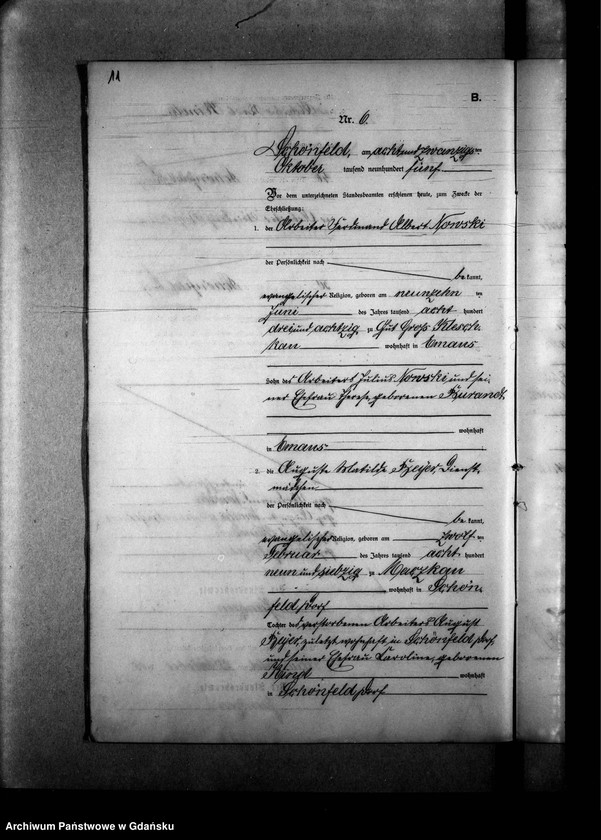 11
B.
Nr. 6.
Schönfeld, am achtundzwanzigsten
Oktober tausend neunhundert fünf
Vor dem unterzeichneten Standesbeamten erschienen heute, zum Zwecke der
Eheschließung:
1. der Arbeiter Ferdinand Albert Nowski
der Persönlichkeit nach
bekannt,
evangelischer Religion, geboren am neunzehn ten
Juni des Jahres tausend acht hundert
dreiundachtzig zu Gut Groß Klesch-
kau wohnhaft in Emaus
Sohn des Arbeiters Julius Nowski und sei-
ner Ehefrau Therese, geborenen
wohnhaft
in Emaus
2. die Auguste Matilde Dienst-
mädchen
der Persönlichkeit nach
bekannt,
evangelischer Religion, geboren am zwölf ten
Februar des Jahres tausend acht hundert
neunundsiebzig zu
wohnhaft in Schön-
feld, Dorf
Tochter des verstorbenen Arbeiters August
zuletzt wohnhaft in Schönfeld, Dorf,
und seiner Ehefrau Caroline, geborenen
wohnhaft
in Schönfeld, Dorf
Archiwum Państwowe w Gdańsku